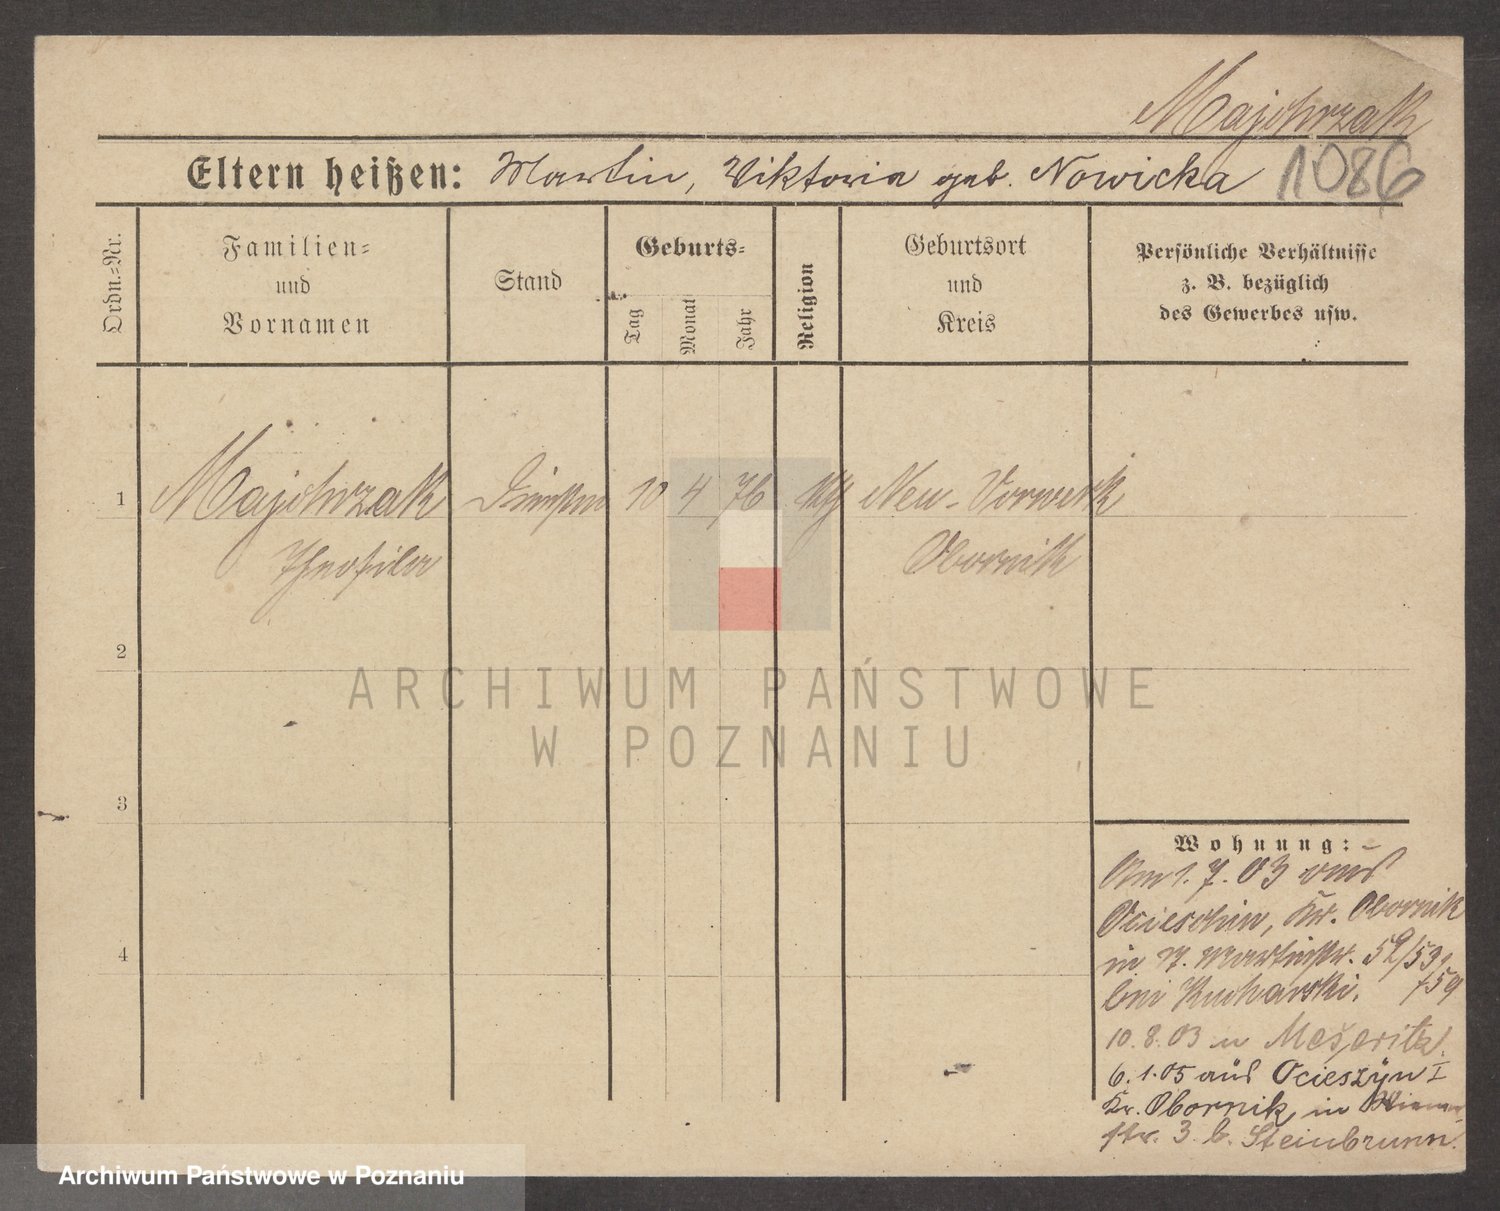 Majchrzak
Eltern heißen: Martin, Viktoria geb. Nowicka 1086
Ordn.=Nr.
Familien=
und
Vornamen
Stand
Geburts=
Tag
Monat
Jahr
Religion
Geburtsort
und
Kreis
Persönliche Verhältnisse
z. B. bezüglich
des Gewerbes usw.
1 Majchrzak 10 4 76 kth Neu-Vorwerk
Theofila Obornik
2
ARCHIWUM PAŃSTWOWE
W POZNANIU
3
4
Wohnung:
Am 1. 7. 03 aus
Ocieschin, Kr. Obornik
in St. Martinstr. 52/53,
bei Kucharski. 759
10. 8. 03 n Meseritz.
6. 1. 05 aus Ocieszyn I
Kr. Obornik, in
str. 3 b. Steinbrunn.
Archiwum Państwowe w Poznaniu